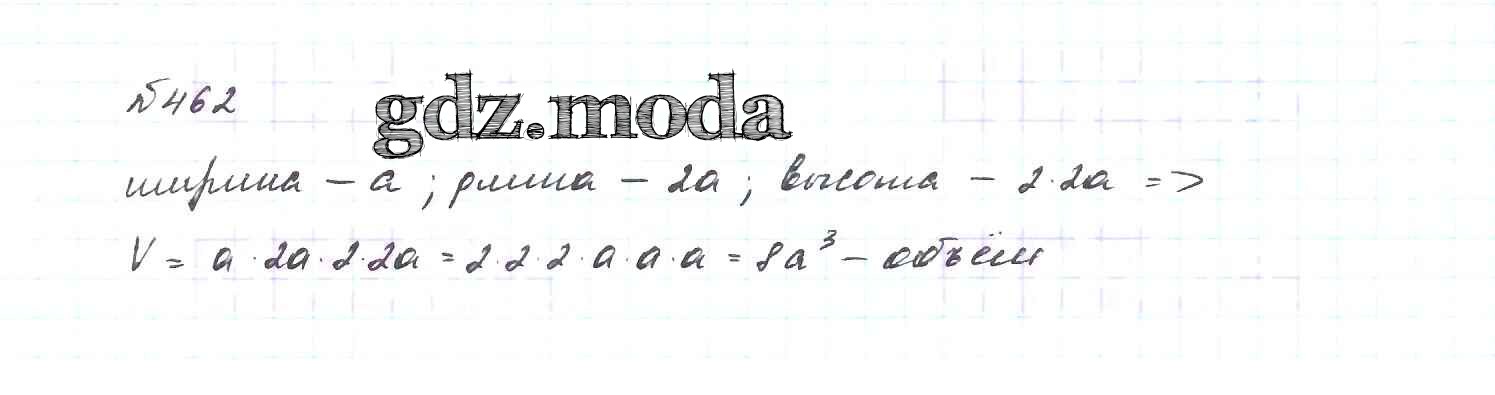 №462
gdz.moda
ширина – a ; длина – 2a ; высота – 2·2a =>
V = a·2a·2·2a = 2·2·2·a·a·a = 8a³ – объём